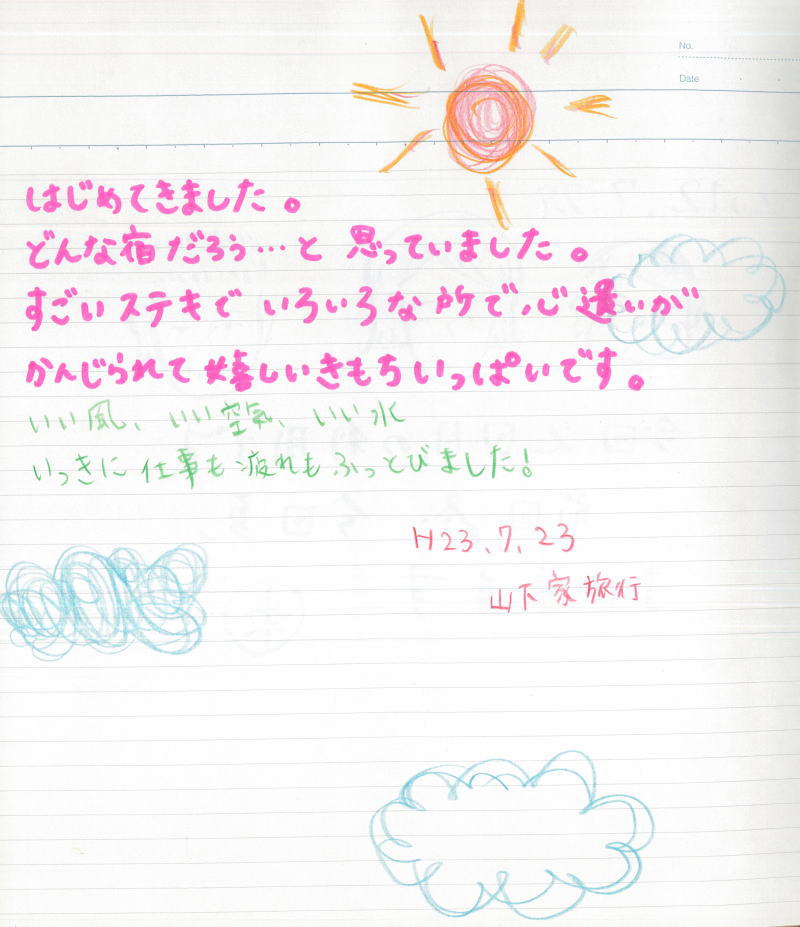 No.
Date
はじめてきました。
どんな宿だろう…と 思っていました。
すごいステキで いろいろな所で心遣いが
かんじられて 嬉しいきもちいっぱいです。
いい風、いい空気、いい水
いっきに 仕事も疲れも ふっとびました!
H23.7.23
山下家旅行